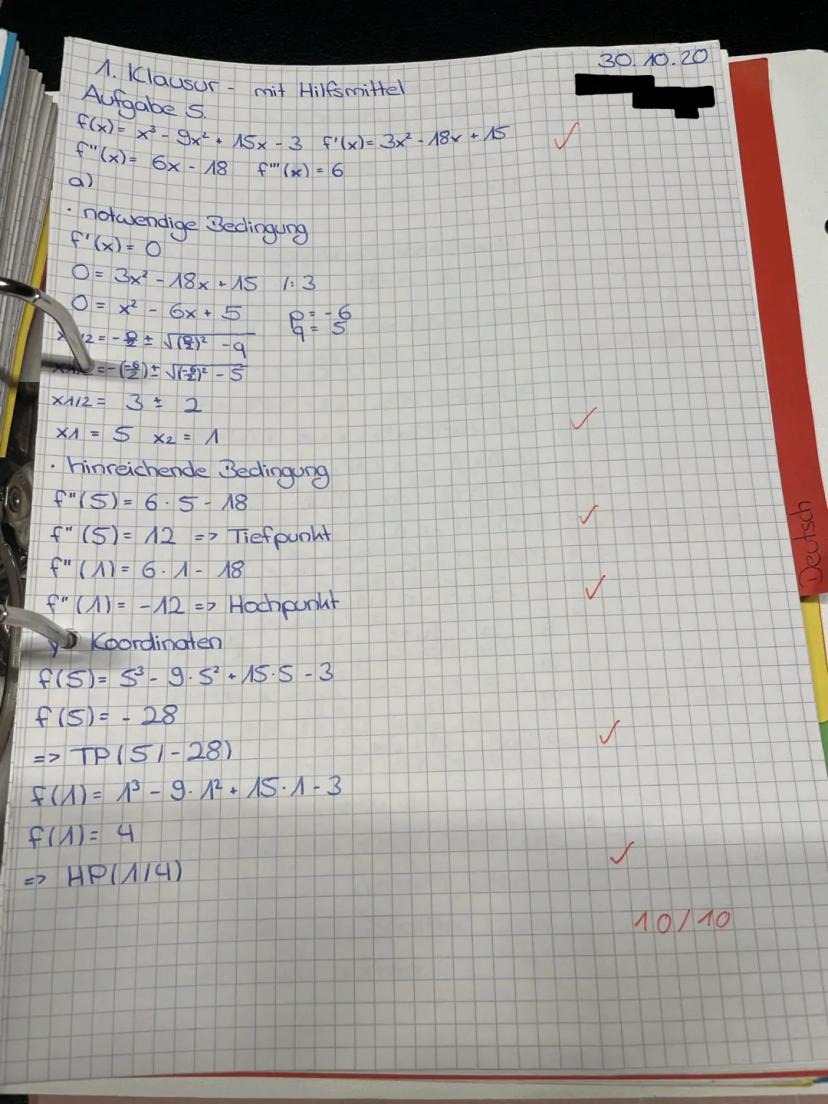 30.10.20
1. Klausur - mit Hilfsmittel
Aufgabe 5.
f(x) = x³ - 9x² + 15x - 3 f'(x) = 3x² - 18x + 15
f''(x) = 6x - 18 f'''(x) = 6
a)
· notwendige Bedingung
f'(x) = 0
0 = 3x² - 18x + 15 /: 3
0 = x² - 6x + 5 p = -6
q = 5
x1/2 = -p/2 ± √(p/2)² - q
= -(-6/2) ± √(-6/2)² - 5
x1/2 = 3 ± 2
x1 = 5 x2 = 1
· hinreichende Bedingung
f''(5) = 6 · 5 - 18
f''(5) = 12 => Tiefpunkt
f''(1) = 6 · 1 - 18
f''(1) = -12 => Hochpunkt
Koordinaten
f(5) = 5³ - 9 · 5² + 15 · 5 - 3
f(5) = - 28
=> TP(5/-28)
f(1) = 1³ - 9 · 1² + 15 · 1 - 3
f(1) = 4
=> HP(1/4)
10/10
Deutsch